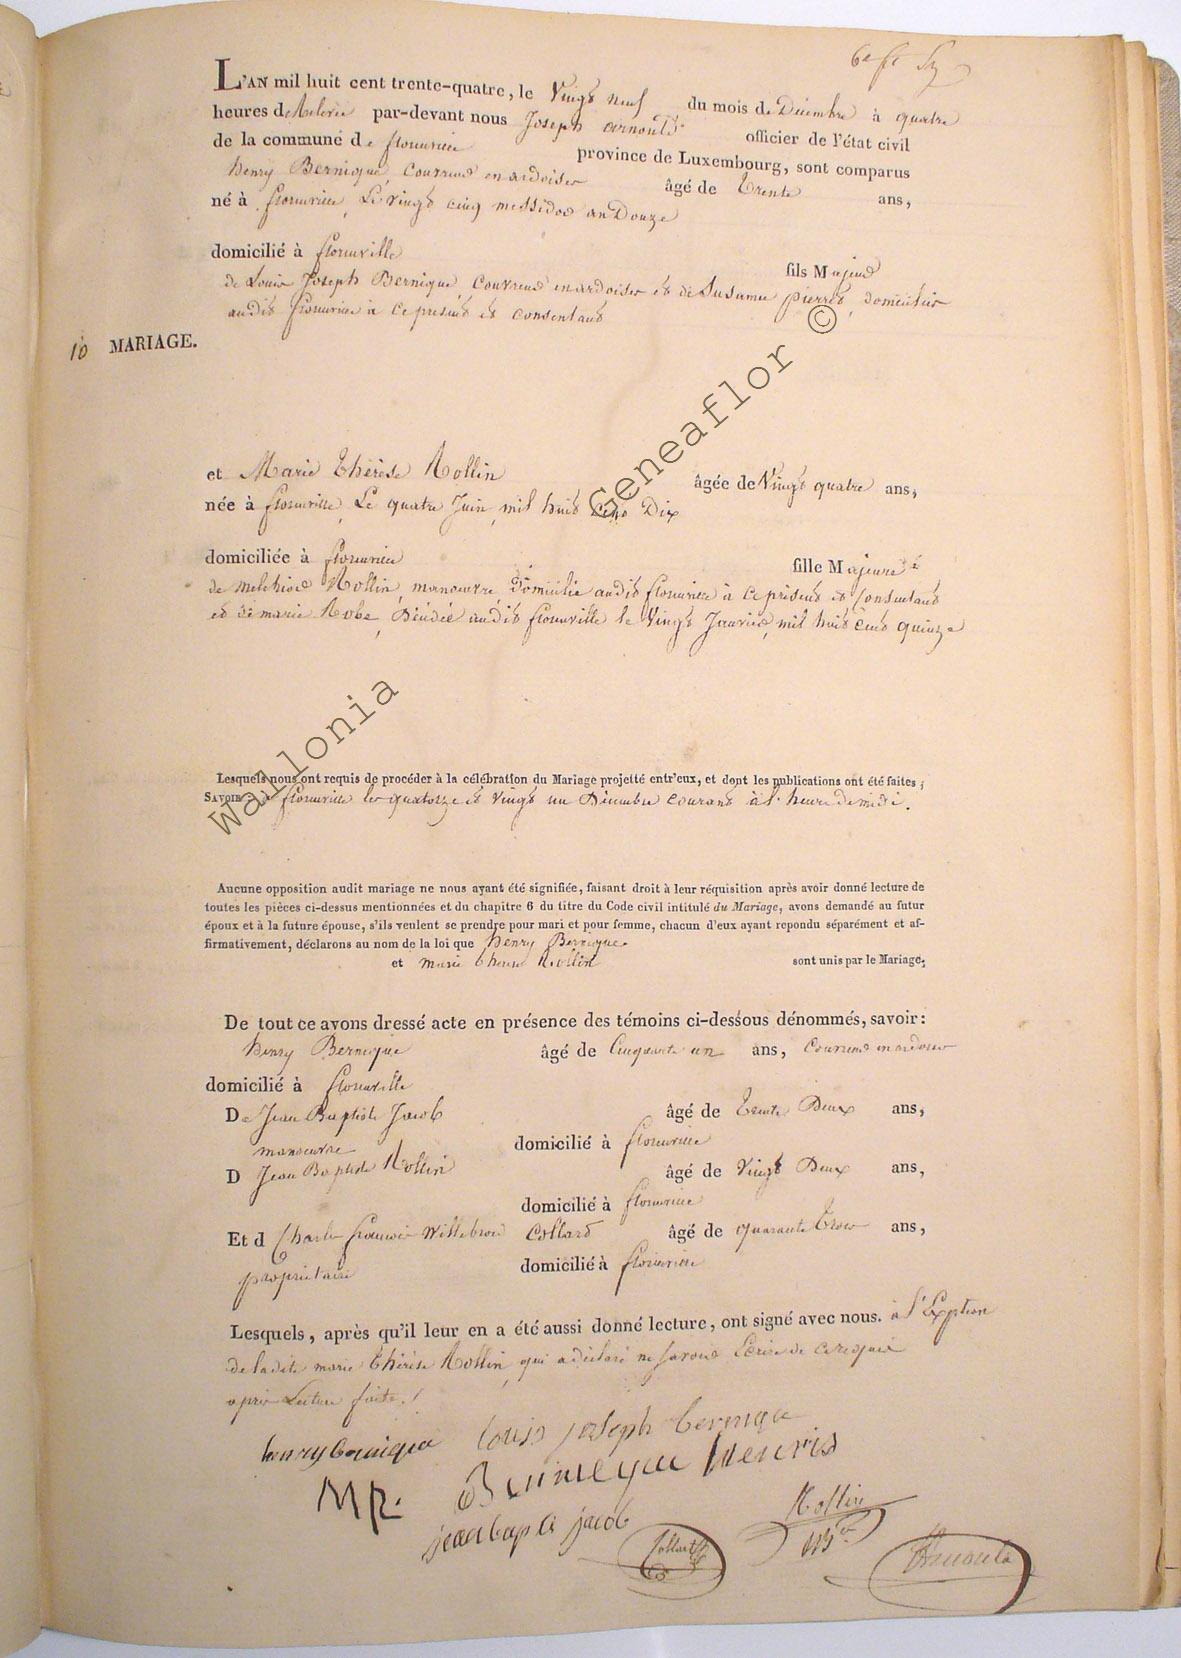 L'AN mil huit cent trente-quatre, le Vingt neuf du mois de Décembre à quatre
heures de Relevée par-devant nous Joseph arnould officier de l'état civil
de la commune de florenville province de Luxembourg, sont comparus
henry Bernique, Couvreur en ardoises âgé de trente ans,
né à florenville, Le vingt cinq messidor an Douze
domicilié à florenville
fils Majeur
de Louis Joseph Bernique Couvreur en ardoises et de Susanne pierret, domiciliés
audit florenville à ce présens et consentans
10 MARIAGE.
et Marie thérèse Rollin âgée de Vingt quatre ans,
née à florenville, Le quatre Juin, mil huit Cent Dix
domiciliée à florenville fille Majeure
de melchior Rollin, manoeuvre, domicilié audit florenville à ce présent et Consentant
et de marie Robe, Décédée audit florenville le Vingt Janvier, mil huit Cent quinze
Lesquels nous ont requis de procéder à la célébration du Mariage projetté entr'eux, et dont les publications ont été faites;
SAVOIR : à florenville les quatorze et vingt un Décembre courant à l'heure de midi.
Aucune opposition audit mariage ne nous ayant été signifiée, faisant droit à leur réquisition après avoir donné lecture de
toutes les pièces ci-dessus mentionnées et du chapitre 6 du titre du Code civil intitulé du Mariage, avons demandé au futur
époux et à la future épouse, s'ils veulent se prendre pour mari et pour femme, chacun d'eux ayant repondu séparément et af-
firmativement, déclarons au nom de la loi que henry Bernique
et marie therese Rollin sont unis par le Mariage;
De tout ce avons dressé acte en présence des témoins ci-dessous dénommés, savoir:
henry Bernique âgé de Cinquante un ans, Couvreur en ardoises
domicilié à florenville
De Jean Baptiste Jacob âgé de trente Deux ans,
manoeuvre domicilié à florenville
D Jean Baptiste Rollin âgé de vingt Deux ans,
domicilié à florenville
Et d Charles françois Willebrord Collard âgé de quarante trois ans,
propriétaire domicilié à florenville
Lesquels, après qu'il leur en a été aussi donné lecture, ont signé avec nous. à l'Exption
de ladite marie thérèse Rollin, qui a déclaré ne savoir Ecrire de ce requis
après Lecture faite.
henry bernique louis joseph bernique
MR. Bernieque Henris
jean bapte jacob Rollin
Collard
Arnould
Wallonia Geneaflor ©